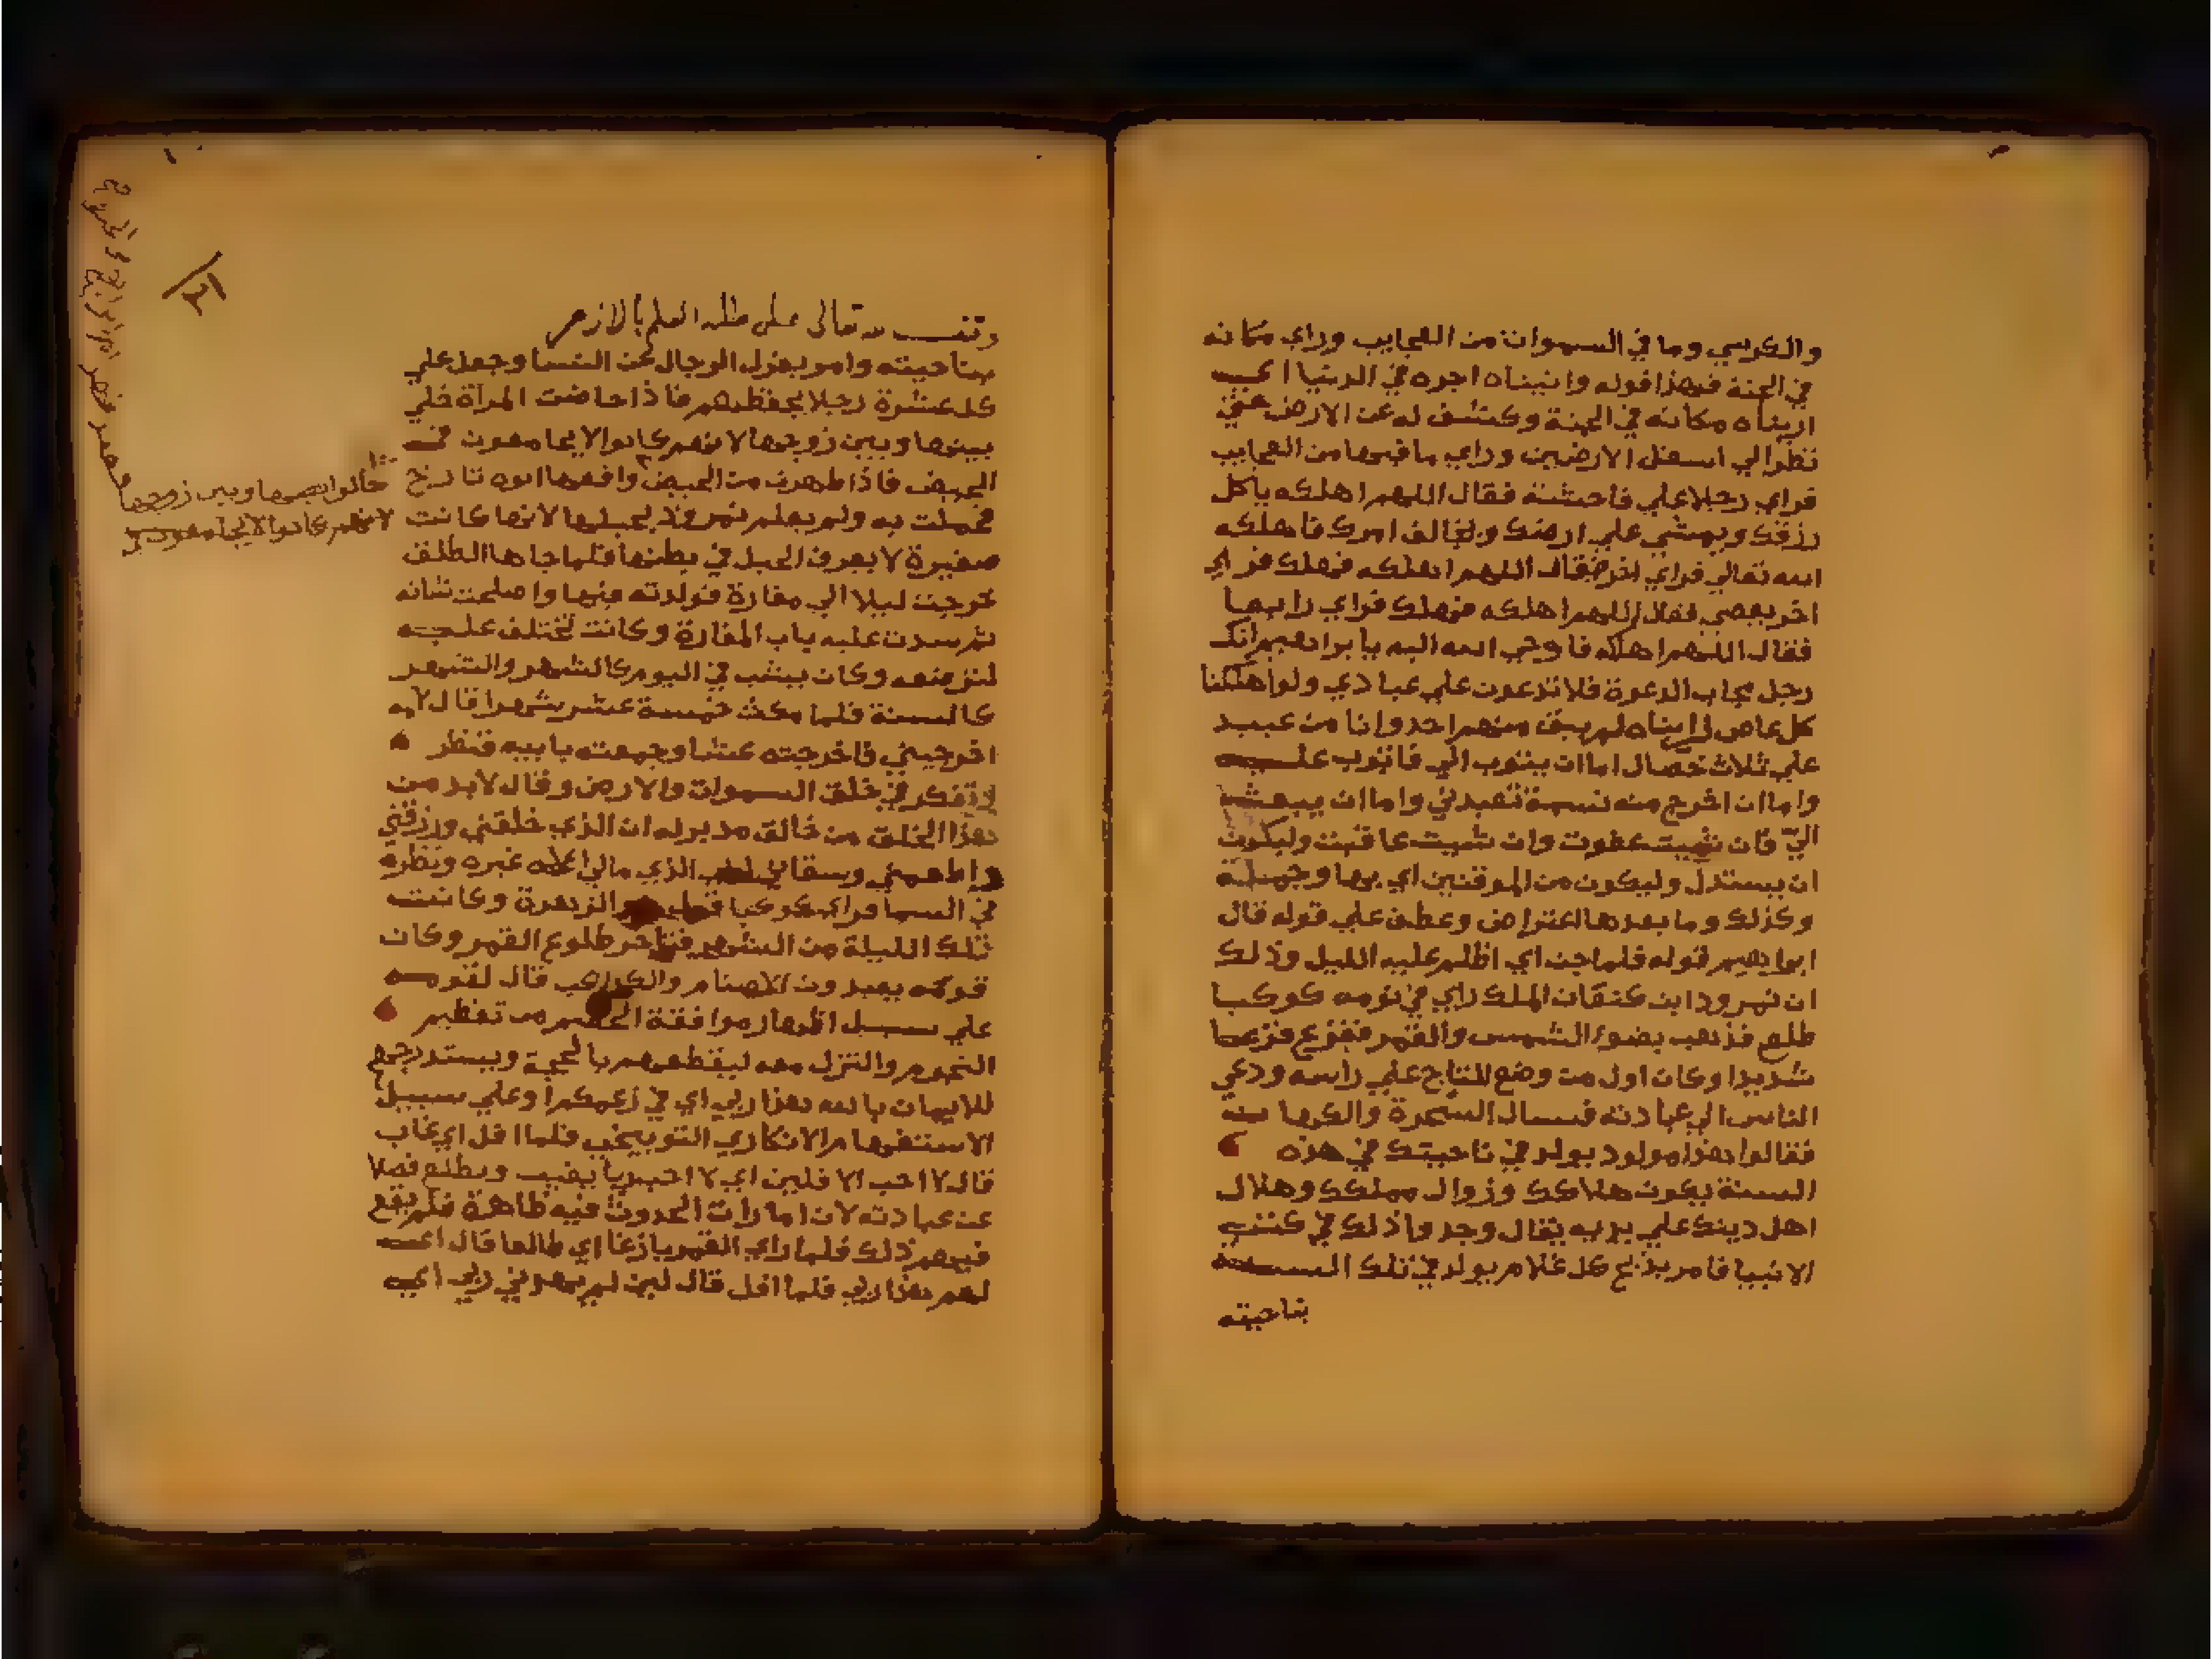 والكرسي وما في السموات من العجايب وراي مكانه
في الجنة فهذا قوله واتيناه اجره في الدنيا اي
اريناه مكانه في الجنة وكشف له عن الارض حتي
نظر الي اسفل الارضين وراي ما فيها من العجايب
فراي رجلا علي فاحشة فقال اللهم اهلكه ياكل
رزقك ويمشي علي ارضك ويخالف امرك فاهلكه
الله تعالي فراي اخر فقال اللهم اهلكه فهلك فراي
اخر يعصي فقال اللهم اهلكه فهلك فراي رابعا
فقال اللهم اهلكه فاوحي الله اليه يا براهيم انك
رجل مجاب الدعوة فلا تدعون علي عبادي ولو اهلكنا
كل عاص لم يبق منهم احد وانا من عبيد
علي ثلاث خصال اما ان يتوب الي فاتوب عليه
واما ان اخرج منه نسمة تعبدني واما ان يبعث
اليّ فان شيت عفوت وان شيت عاقبت وليكون
ان يستدل وليكون من الموقنين اي بها وجملة
وكذلك وما بعدها اعتراض وعطف علي قوله قال
ابراهيم قوله فلما جن اي اظلم عليه الليل وذلك
ان نمرود ابن كنعان الملك راي في نومه كوكبا
طلع فذهب بضوء الشمس والقمر ففزع فزعا
شديدا وكان اول من وضع التاج علي راسه ودعي
الناس الي عبادته فسال السحرة والكهانة
فقالوا هذا مولود يولد في ناحيتك في هذه
السنة يكون هلاكك وزوال مملكك وهلال
اهل دينك علي يديه يقال وجدوا ذلك في كتب
الانبيا فامر بذبح كل غلام يولد في تلك السنة
بناحيته
وقف لله تعالى على طلبة العلم بالازهر
بناحيته وامر بعزل الرجال عن النسا وجعل علي
كل عشرة رجلا يحفظهم فاذا حاضت المراة خلي
بينها وبين زوجها لانهم كانوا لا يجامعون في
الحيض فاذا طهرت من الحيض واقعها ابوه تارخ
فحملت به ولم يعلم نمروذ بحبلها لانها كانت
صغيرة لا يعرف الحبل في بطنها فلما جاها الطلق
خرجت ليلا الي مغارة فولدته فيها واصلحت شانه
ثم سدت عليه باب المغارة وكانت تختلف عليه
لترضعه وكان يشب في اليوم كالشهر والشهر
كالسنة فلما مكث خمسة عشر شهرا قال لامه
اخرجيني فاخرجته عشا وجمعته بابيه فنظر
وتفكر في خلق السموات والارض وقال لابد من
هذا الخلق من خالق مدبر له ان الذي خلقني ورزقني
واطعمني وسقاني لربي الذي مالي اله غيره ونظر
في السما فراي كوكبا قيل هو الزهرة وكانت
تلك الليلة من الشهر فتاخر طلوع القمر وكان
قومه يعبدون الاصنام والكواكب قال لقومه
علي سبيل اظهار موافقة الخصم من تعظيم
النجوم والتنزل معه ليقطعهم بالحجة ويستدرجهم
للايمان بالله هذا ربي اي في زعمكم او علي سبيل
الاستفهام الانكاري التوبيخي فلما افل اي غاب
قال لا احب الافلين اي لا احب ربا يغيب ويطلع فضلا
عن عبادته لان امارات الحدوث فيه ظاهرة فلم ينجع
فيهم ذلك فلما راي القمر بازغا اي طالعا قال اي
لهم هذا ربي فلما افل قال لين لم يهدني ربي اي
بينها وبين زوجها
لانهم كانوا لا يجامعون